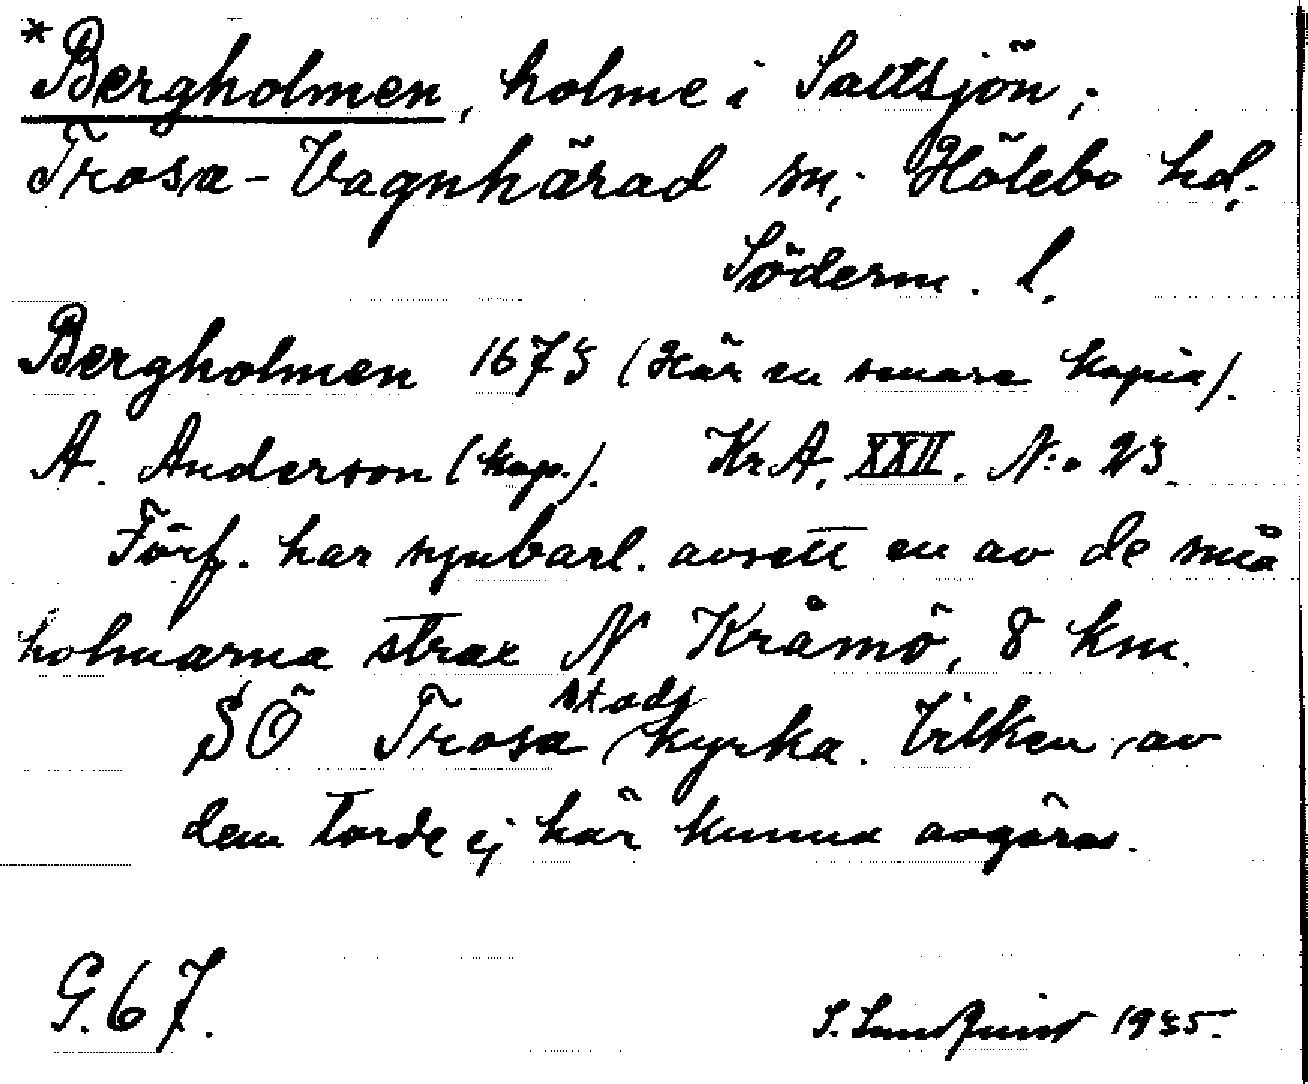 *Bergholmen, holme i Saltsjön;
Trosa-Vagnhärad sn; Hölebo hd;
Söderm. l.
Bergholmen 1673 (Här en senare kopia).
A. Anderson (kop.). Kr.A. XXII. N:o 23.
Förf. har synbarl. avsett en av de små
holmarna strax N Kråmö, 8 km.
SÖ Trosa stads kyrka. Vilken av
dem torde ej här kunna avgöras.
G. 67. S. Lundquist 1935.